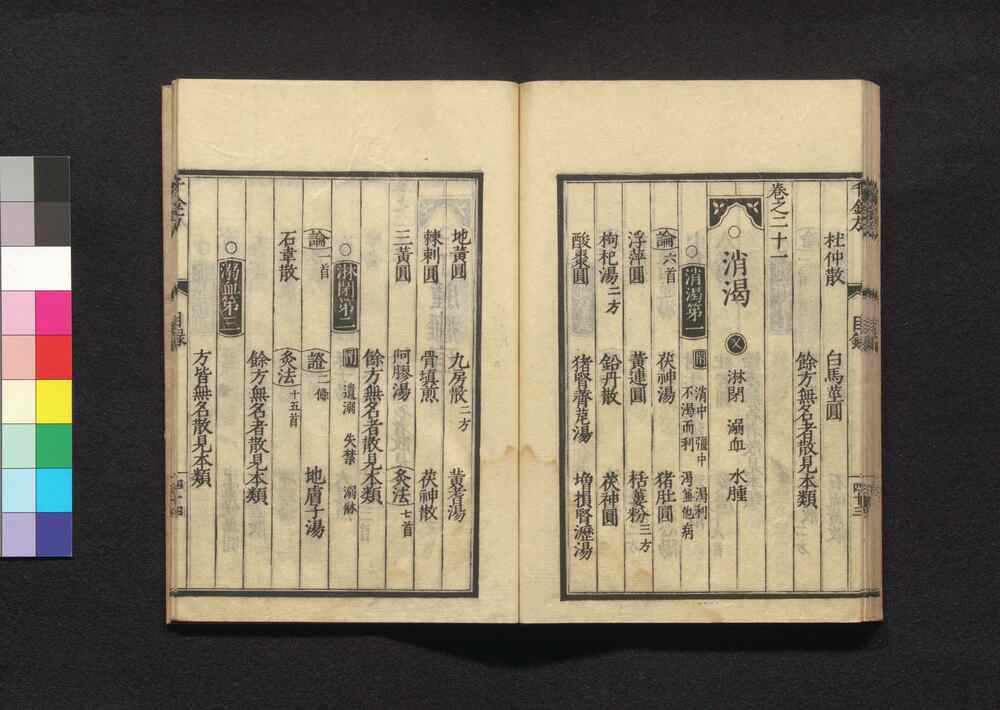 杜仲散 白馬莖圓
餘方無名者散見本類
卷之二十一
○消渴 又 淋閉 溺血 水腫
○消渴第一 附 消中 強中 渴利 不渴而利 渴兼他病
論六首 茯神湯 豬肚圓
浮萍圓 黃連圓 栝蔞粉三方
枸杞湯二方 鉛丹散 茯神圓
酸棗圓 豬腎薺苨湯 增損腎瀝湯
千金方 目錄
地黃圓 九房散二方 黃耆湯
棘刺圓 骨填煎 茯神散
三黃圓 阿膠湯 灸法七首
餘方無名者散見本類
○淋閉第二 附 遺溺 失禁 溺牀
論一首 證二條 地膚子湯
石韋散 灸法十五首
餘方無名者散見本類
○溺血第三
方皆無名者散見本類
目錄